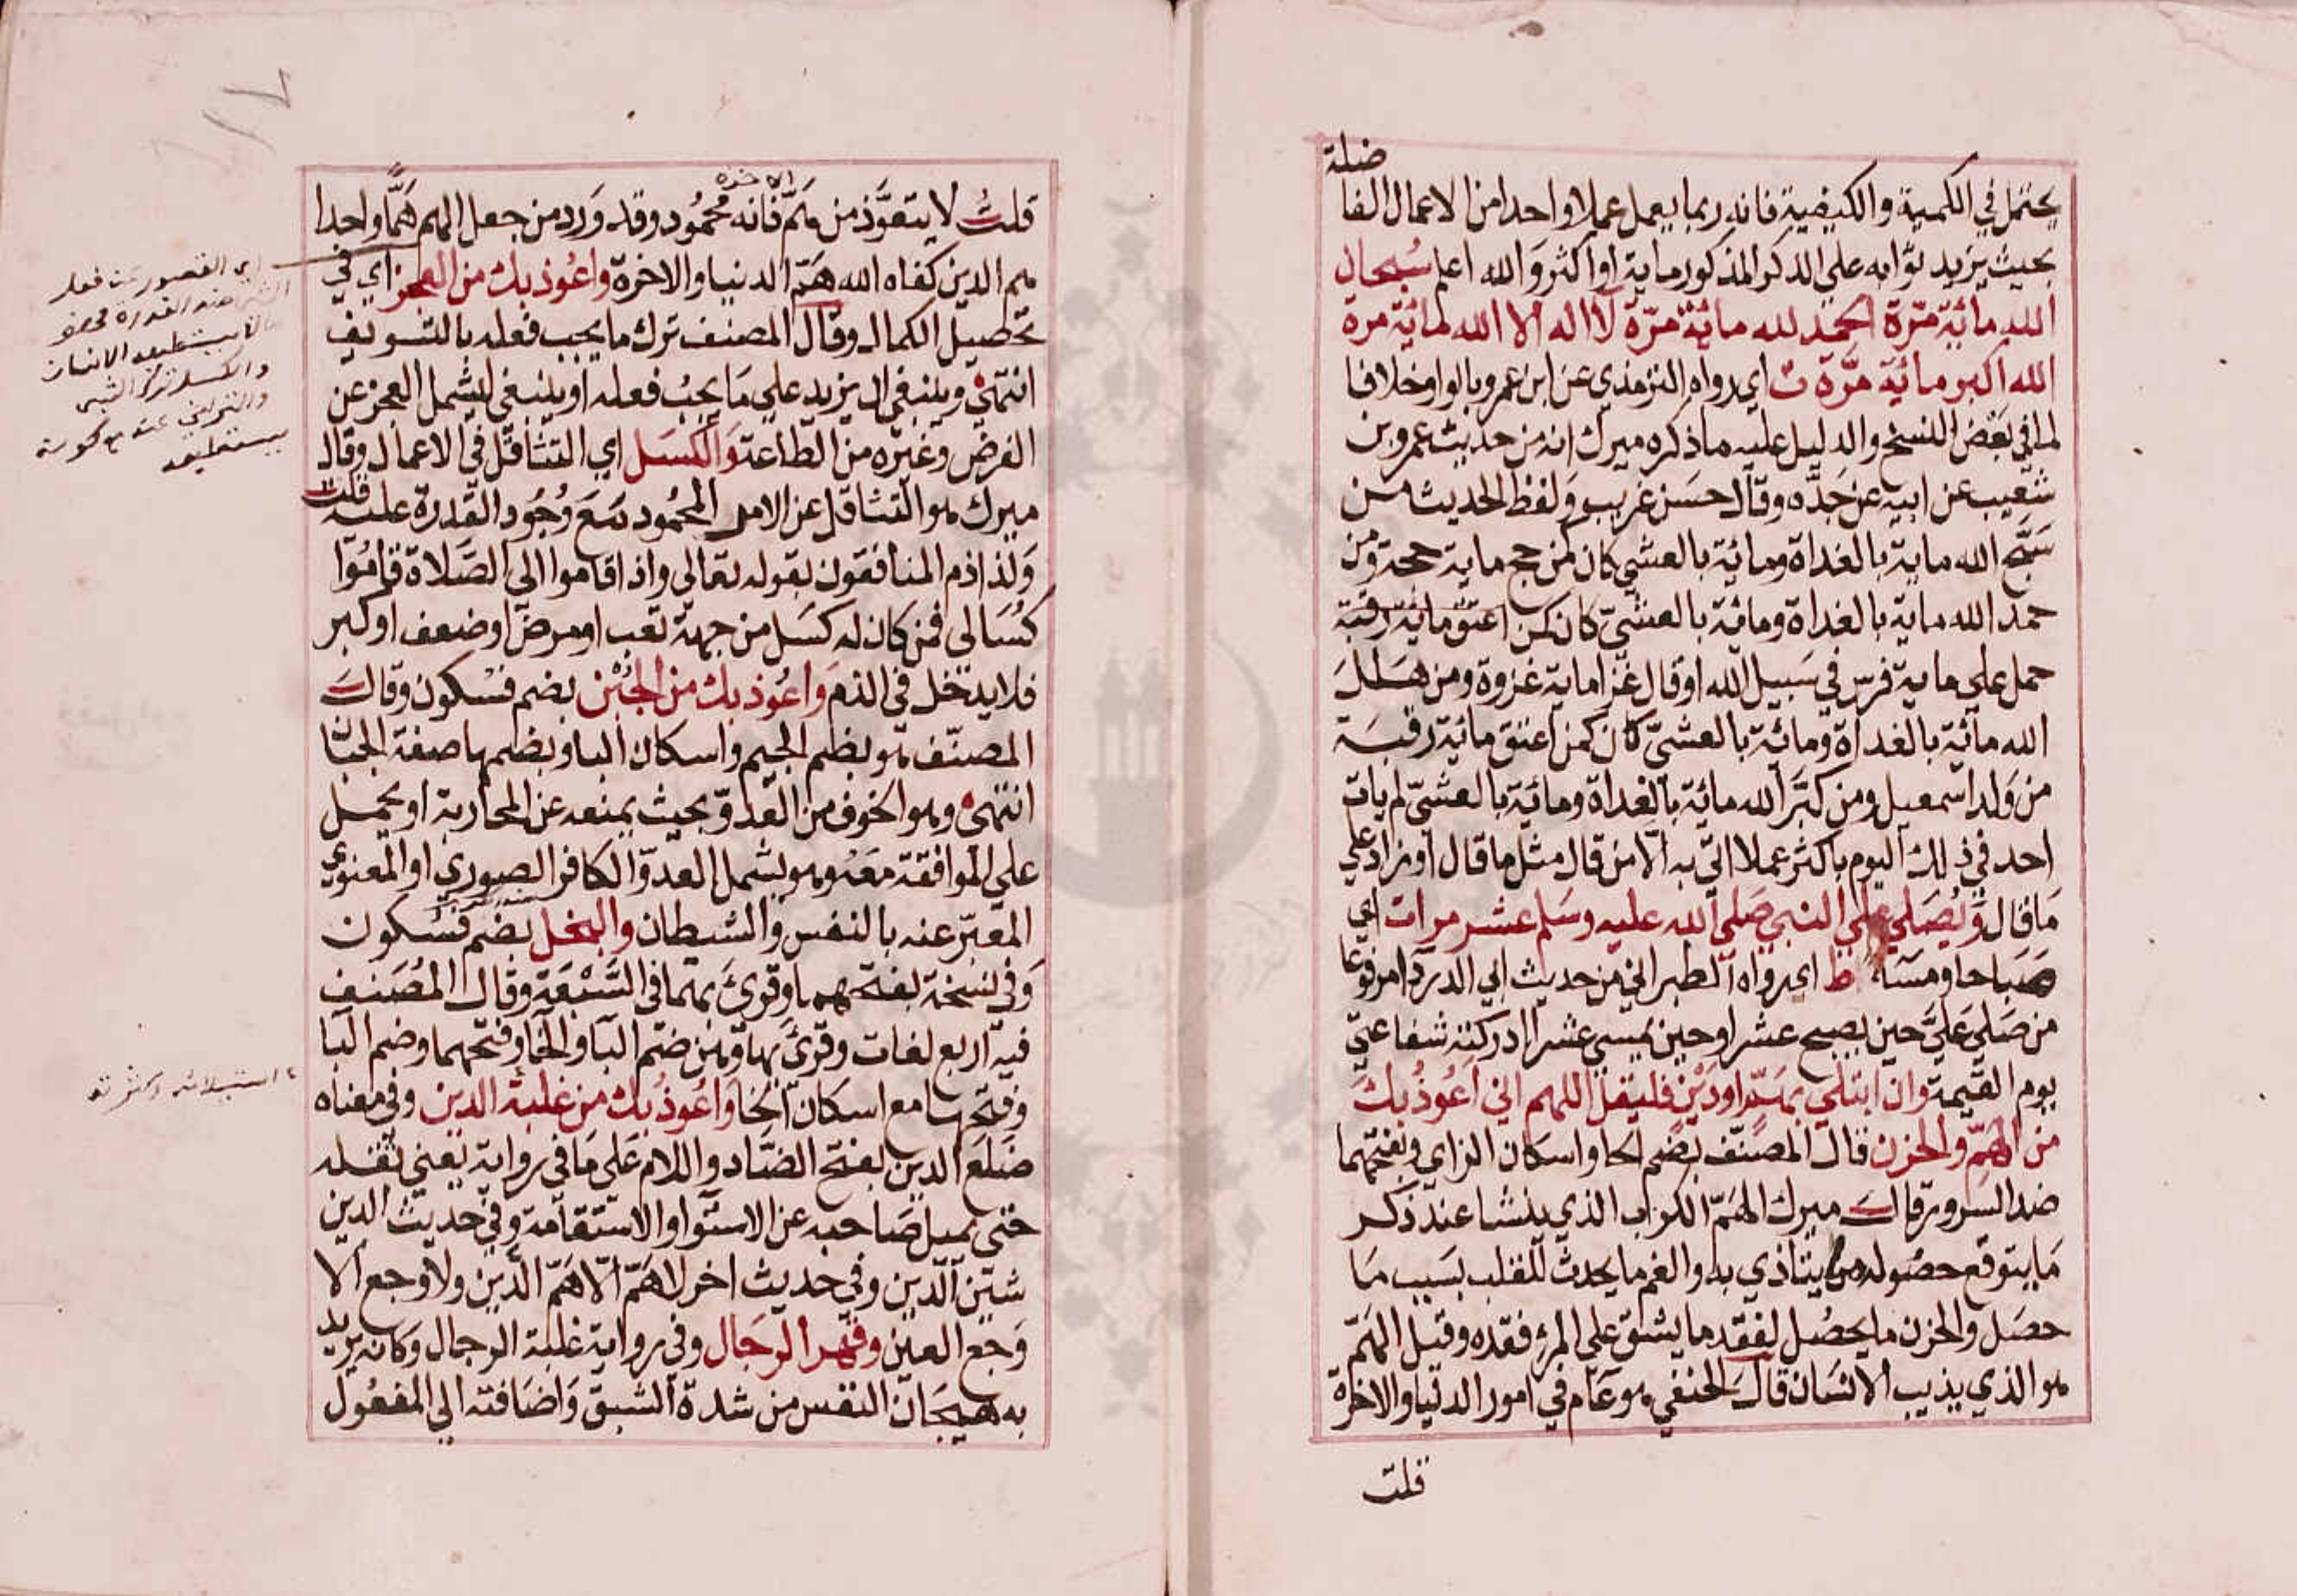 يحتمل في الكمية والكيفية فانه ربما يعمل عملا واحدا من الاعمال الفا
ضلة
بحيث يزيد ثوابه علي الذكر المذكور ماية او اكثر والله اعلم سبحان
الله مائة مرة الحمد لله مائة مرة لا اله الا الله مائة مرة
الله اكبر مائة مرة ت اي رواه الترمذي عن ابن عمرو بالواو خلافا
لما في بعض النسخ والدليل عليه ما ذكره ميرك انه من حديث عمرو بن
شعيب عن ابيه عن جده وقال حسن غريب ولفظ الحديث من
سبح الله ماية بالغداة ومائة بالعشي كان كمن حج ماية حجة ومن
حمد الله ماية بالغداة ومائة بالعشي كان كمن اعتق ماية رقبة
حمل علي ماية فرس في سبيل الله او قال غزا ماية غزوة ومن هلل
الله مائة بالغداة ومائة بالعشي كان كمن اعتق مائة رقبة
من ولد اسمعيل ومن كبر الله مائة بالغداة ومائة بالعشي لم يات
احد في ذلك اليوم باكثر عملا اتي به الا من قال مثل ما قال او زاد علي
ما قال ويصلي علي النبي صلي الله عليه وسلم عشر مرات اي
صباحا ومساء ط اي رواه الطبراني من حديث ابي الدرداء مرفوعا
من صلي علي حين يصبح عشرا وحين يمسي عشرا ادركته شفاعتي
يوم القيمة وان ابتلي بهم او دين فليقل اللهم اني اعوذ بك
من الهم والحزن قال المصنف بضم الحا واسكان الزاي وبفتحهما
ضد السرور قال ميرك الهم الكرب الذي ينشا عند ذكر
ما يتوقع حصوله مما يتاذي به والغم ما يحدث للقلب بسبب ما
حصل والحزن ما يحصل لفقد ما يشق علي المرء فقده وقيل الهم
هو الذي يذيب الانسان قال الحنفي هو عام في امور الدنيا والاخرة
قلت
قلت لا يتعوذ من هم الاخرة فانه محمود وقد ورد من جعل الهم هما واحدا
هم الدين كفاه الله هم الدنيا والاخرة واعوذ بك من العجز اي في
تحصيل الكمال وقال المصنف ترك ما يجب فعله بالتسويف
انتهي وينبغي ان يزيد علي ما يجب فعله او ينبغي ليشمل العجز عن
الفرض وغيره من الطاعة والكسل اي التثاقل في الاعمال وقال
ميرك هو التثاقل عن الامر المحمود مع وجود القدرة عليه قلت
ولذا ذم المنافقون بقوله تعالي واذا قاموا الي الصلاة قاموا
كسالي فمن كان له كسل من جهة تعب او مرض او ضعف او كبر
فلا يدخل في الذم واعوذ بك من الجبن بضم فسكون وقال
المصنف هو بضم الجيم واسكان البا وبضمها صفة الجبا
انتهي وهو الخوف من العدو بحيث يمنعه عن المحاربة او يحمل
علي الموافقة معه وهو يشمل العدو الكافر الصوري او المعنوي
المعبر عنه بالنفس والشيطان والبخل بضم فسكون
وفي نسخة بفتحهما وقرئ بهما في السبعة وقال المصنف
فيه اربع لغات وقرئ بها وهن ضم البا والخا وفتحهما وضم البا
وفتحها مع اسكان الخا واعوذ بك من غلبة الدين وفي معناه
ضلع الدين بفتح الضاد واللام علي ما في رواية يعني ثقله
حتي يميل صاحبه عن الاستوا والاستقامة وفي حديث الدين
شين الدين وفي حديث اخر لا هم الا هم الدين ولا وجع الا
وجع العين وقهر الرجال وفي رواية غلبة الرجال وكانه يريد
به هيجان النفس من شدة الشبق واضافته الي المفعول
اي القصور عن فعل
الشي ضد القدرة
لا يستطيعه الانسان
والكسل ترك الشي
والتراخي عنه مع كونه
يستطيعه
استيلائه وكثرته